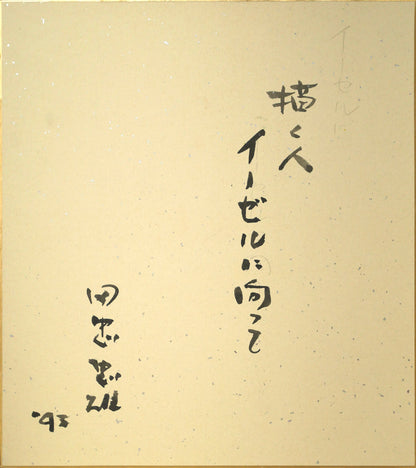 イーゼルに
描く人
イーゼルに向って
田忠忠雄
'93